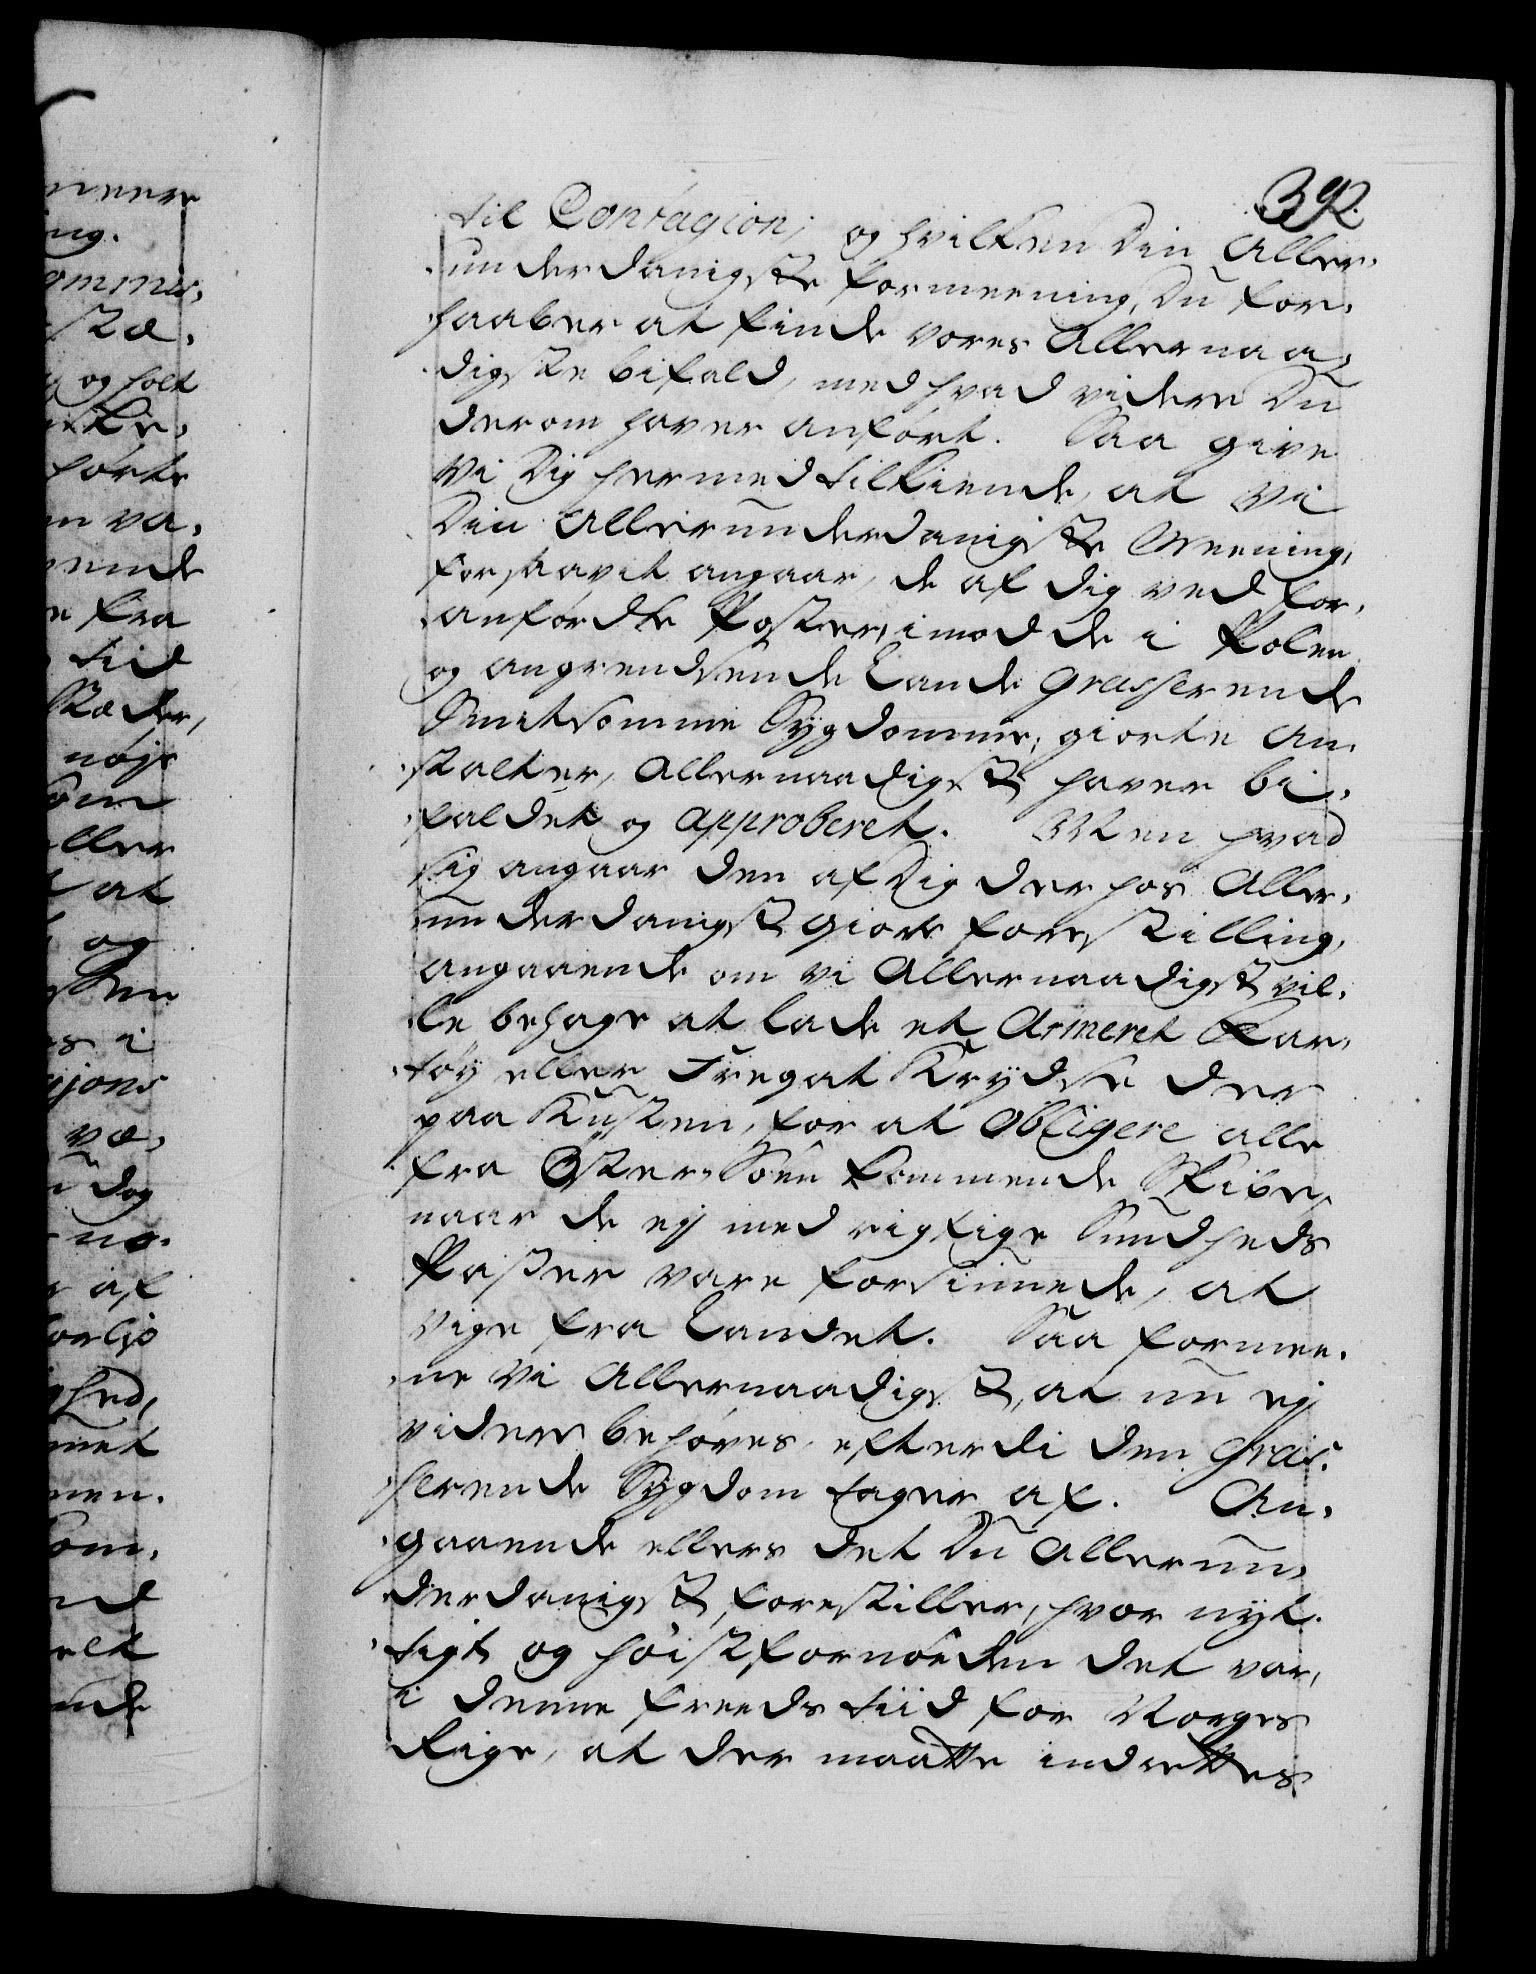 392.
til Contagion; og hvilken Din Aller,
underdanigste formeening, Du for,
haaber at finde vores Allernaa,
digste bifald, med hvad videre Du
derom haver anført. Saa give
Vi Dig hermed tilkiende, at Vi
Din Allerunderdanigste Meening,
forsaavit angaar, de af Dig ved for,
anførdte Poster, imod de i Polen
og angrendsende Lande Grasserende
Smitsomme Sygdomme, giorte An,
stalter, Allernaadigst haver bi,
faldet og approberet. Men hvad
sig angaar den af Dig der hos Aller,
underdanigst giorte forestilling,
angaaende om Vi Allernaadigst vil,
le behage at lade et Armeret Far,
tøy eller Fregat Krydse der
paa Kusten, for at Obligere alle
fra Øster-Søen kommende Skibe,
naar de ej med rigtige Sundheds
Passer vare forsiunede, at
vige fra Landet. Saa formee,
ne Vi Allernaadigst, at nu ej
videre behøves, efterdi den Gras,
serende Sygdom tager af. An,
gaaende ellers det Du Allerun,
derdanigst forestiller, hvor nyt,
tigt og høist fornøden det var,
i denne freeds tiid for Norges
Rige, at der maatte indrettes